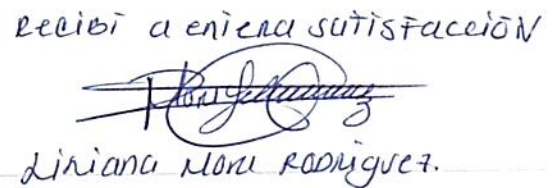 Recibi a entera satisfacción
Liliana Mora Rodriguez.